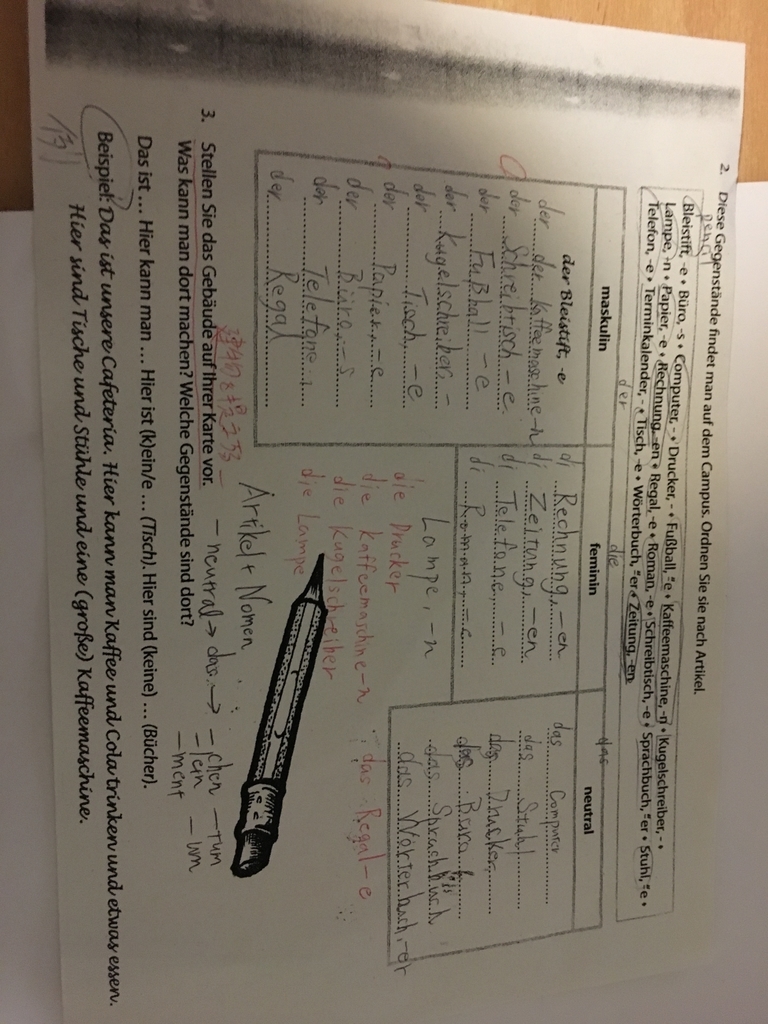 2. Diese Gegenstände findet man auf dem Campus. Ordnen Sie sie nach Artikel.
Bleistift, -e • Büro, -s • Computer, - • Drucker, - • Fußball, ⸚e • Kaffeemaschine, -n • Kugelschreiber, - •
Lampe, -n • Papier, -e • Rechnung, -en • Regal, -e • Roman, -e • Schreibtisch, -e • Sprachbuch, ⸚er • Stuhl, ⸚e •
Telefon, -e • Terminkalender, - • Tisch, -e • Wörterbuch, ⸚er • Zeitung, -en
der die das
maskulin feminin neutral
der Bleistift, -e
der der Kaffeemaschine-n
der Schreibtisch -e
der Fußball -e
der Kugelschreiber, -
der Tisch, -e
der Papier, -e
der Büro, -s
der Telefone
der Regal
di Rechnung, -en
di Zeitung, -en
di Telefone -e
di Roman, -e
Lampe, -n
die Drucker
die Kaffeemaschine-n
die Kugelschreiber
die Lampe
das Computer
das Stuhl
das Drucker,
das Büro
das Sprachbuch
das Wörterbuch, -er
das Regal-e
Artikel + Nomen
- neutral → das. → - chen - tum
- lein - um
- ment
3. Stellen Sie das Gebäude auf Ihrer Karte vor.
Was kann man dort machen? Welche Gegenstände sind dort?
Das ist … Hier kann man … Hier ist (k)ein/e … (Tisch). Hier sind (keine) … (Bücher).
Beispiel: Das ist unsere Cafeteria. Hier kann man Kaffee und Cola trinken und etwas essen.
Hier sind Tische und Stühle und eine (große) Kaffeemaschine.